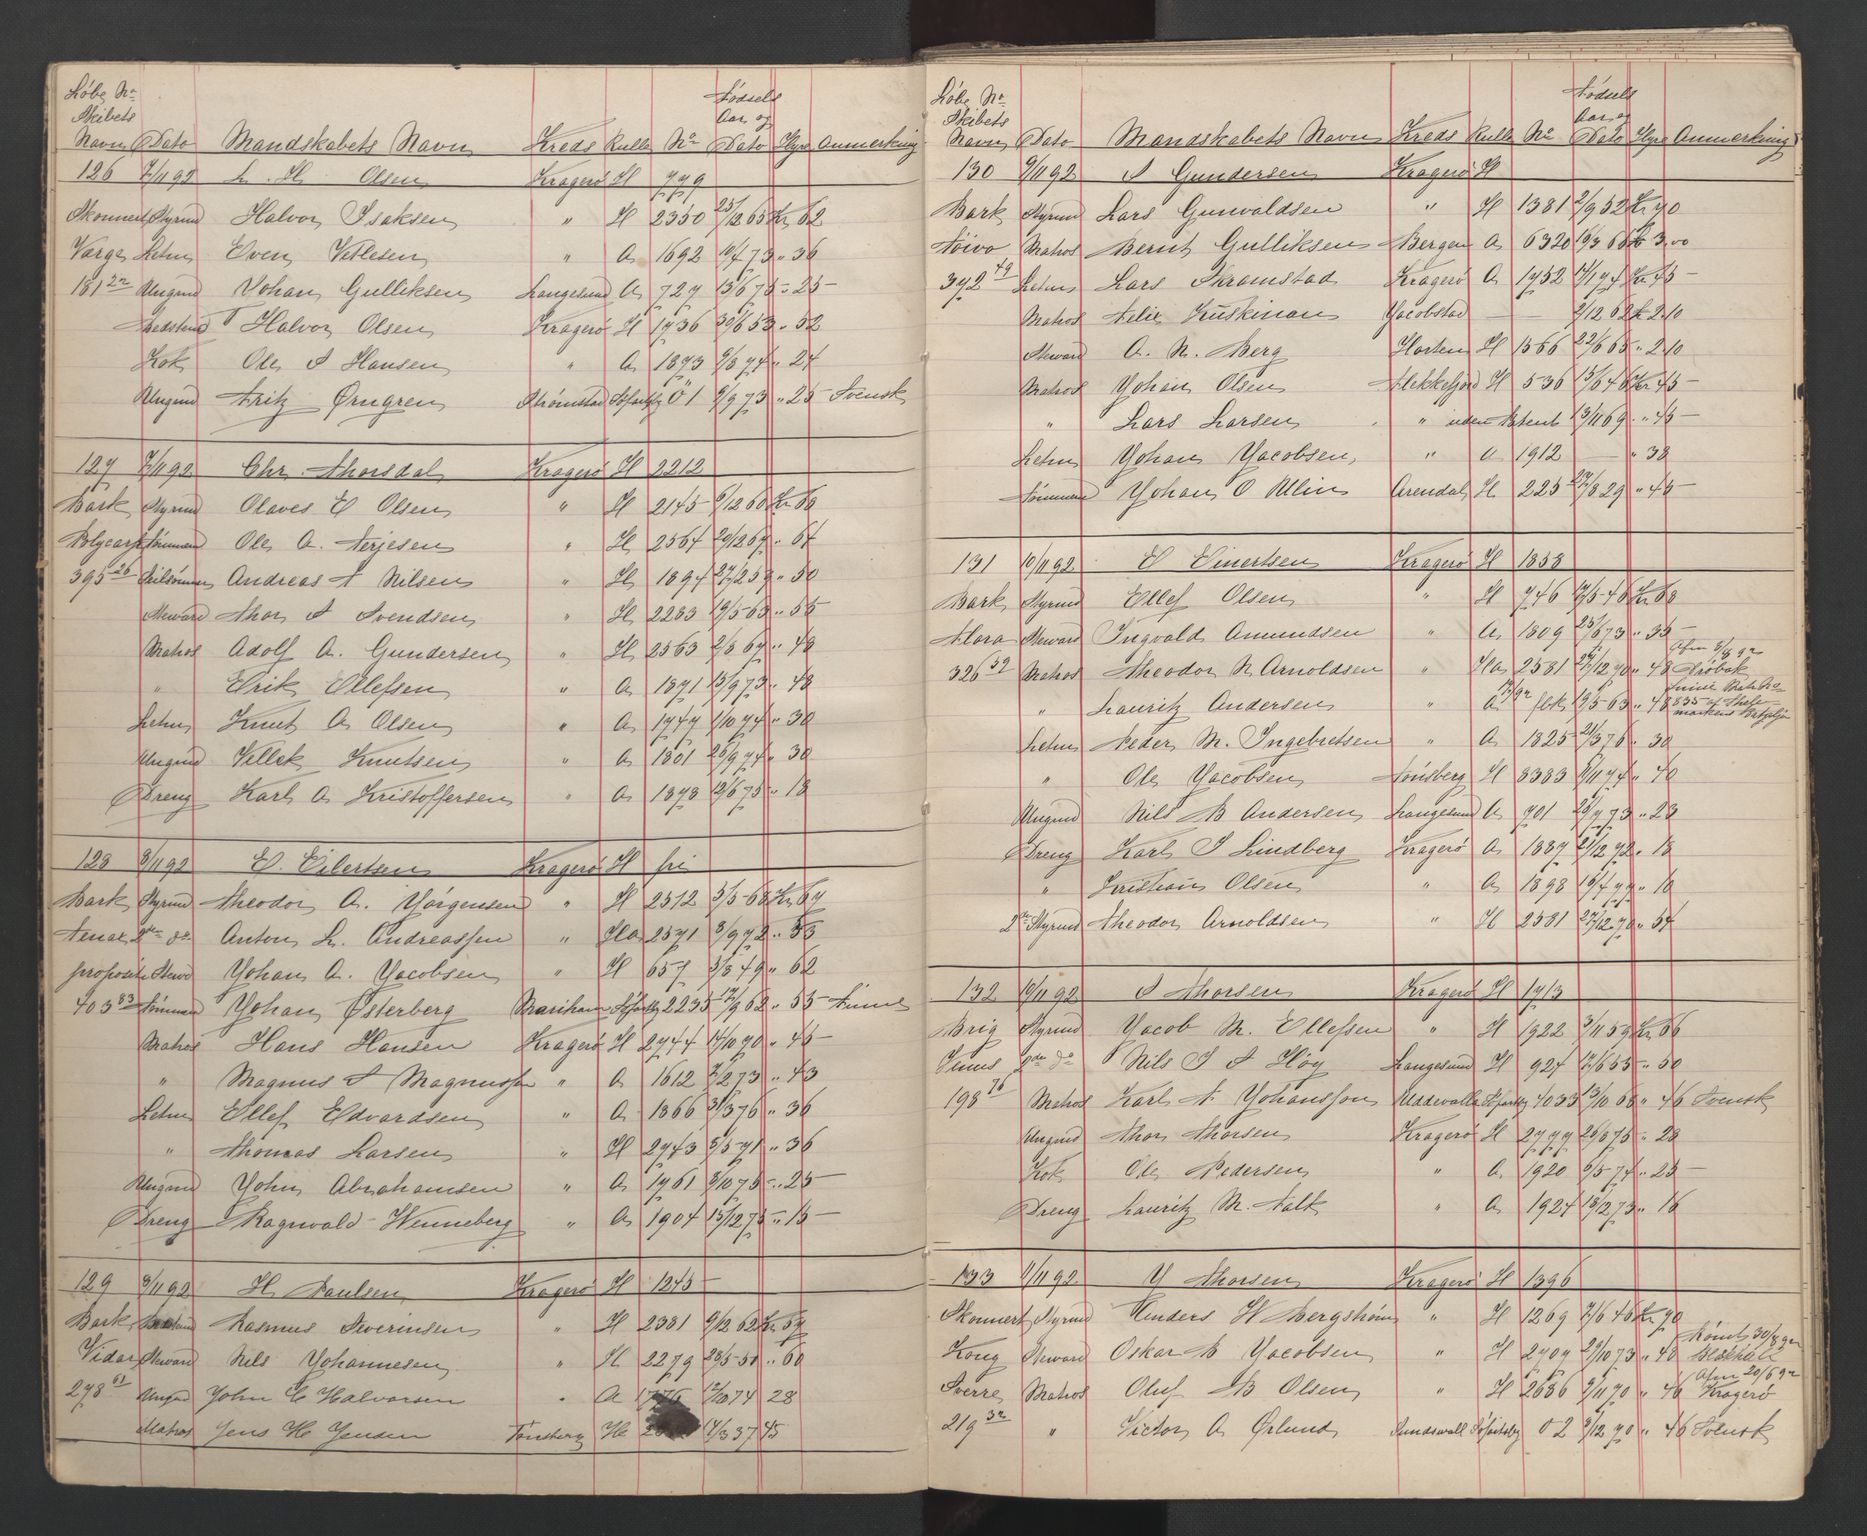 Løbe Nr
Skibets
Navn Dato Mandskabets Navn Kreds Rulle Nr Fødsels Aar og Dato Hyre Anmerkning
126 7/11 92 L. H. Olsen Kragerø H 779
Skonnert Styrmd Halvor Isaksen " H 2350 25/12 65 Kr 62
Varge Letm Even Vetlesen " A 1692 10/4 73 " 36
181 Ungmd Johan Gulliksen Langesund A 727 13/6 75 " 25
Halvor Olsen Kragerø H 1736 30/6 53 " 52
Kok Ole S Hansen " A 1873 9/8 74 " 24
Ungmd Fritz Ørngren Strømstad 01 9/9 73 " 25 Svensk
127 7/11 92 Chr. Thorsdal Kragerø H 2212
Bark Styrmd Olaves E Olsen " H 2145 6/12 60 Kr 68
Polycarp Tømmmd Ole A. Terjesen " H 2564 20/12 67 " 64
395 26 Seilsømmer Andreas T Nilsen " H 1894 27/2 59 " 50
Steward Thor S Svendsen " H 2283 19/5 63 " 55
Matros Adolf A. Gundersen " H 2563 2/8 67 " 48
" Erik Ellefsen " A 1871 13/9 73 " 48
Letm Knut A Olsen " A 1747 1/10 74 " 30
Ungmd Vellek Knutsen " A 1801 26/9 74 " 30
Dreng Karl A Kristoffersen " A 1878 12/6 75 " 18
128 8/11 92 E. Eilertsen Kragerø H fri
Bark Styrmd Theodor A. Jørgensen " H 2512 3/5 68 Kr 67
Tenax 2den do Anton L. Andreassen " Ha 2571 8/9 72 " 55
propositi Stewd Johan A. Jacobsen " H 657 3/8 49 " 62
403 83 Tømmmd Johan Østerberg Mariham 2235 17/9 62 " 55 Finne
Matros Hans Hansen Kragerø H 2744 14/10 70 " 45
" Magnus S Magnussen " A 1612 7/2 73 " 43
Letm Ellef Edvardsen " A 1866 31/3 76 " 36
" Thomas Larsen " H 2743 5/5 71 " 36
Ungmd John Abrahamsen " A 1761 8/10 75 " 25
Dreng Ragnvald Wenneberg " A 1904 15/12 75 " 15
129 8/11 92 H. Paulsen Kragerø H 1245
Bark Rasmus Severinsen " H 2381 9/12 62 Kr 67
Vidar Steward Nils Johannesen " H 2279 28/5 51 " 60
278 61 Ungmd John C Halvorsen " A 1776 12/10 74 28
Matros Jens H Jensen Tønsberg H 14/3 37 45
Løbe Nr
Skibets
Navn Dato Mandskabets Navn Kreds Rulle Nr Fødsels Aar og Dato Hyre Anmerkning
130 9/11 92 S Gundersen Kragerø H
Bark Styrmd Lars Gunvaldsen " H 1381 2/9 52 Kr 70
Matros Bernt Gulliksen Bergen A 6320 16/3 66 3.00
372 49 Letm Lars Skramstad Kragerø A 1752 14/1 74 Kr 45
Matros Felix Kuskinan Jacobstad — — 2/12 62 2.10
Steward A. N. Berg Horten H 1566 22/6 65 " 2.10
Matros Johan Olsen Flekkefjord H 536 13/6 46 Kr 45
" Lars Larsen " uden Patent 13/11 69 " 45
Letm Johan Jacobsen " A 1912 — " 38
Tømmmd Johan O Ullin Arendal H 225 27/8 29 " 45
131 10/11 92 E Einertsen Kragerø H 1858
Bark Styrmd Ellef Olsen " H 746 7/5 46 Kr 68
Flora Steward Ingvald Amundsen " A 1809 25/6 73 " 35
326 52 Matros Theodor N Arnoldsen " Ha 2581 27/12 70 " 48 Afm 8/8 92 Drøbak
" Lauritz Andersen " A 19/5 63 " 48
Letm Peder M. Ingebretsen " A 1825 21/3 76 " 30
" Ole Jacobsen Tønsberg H 8383 8/11 74 " 40
Ungmd Nils B Andersen Langesund A 701 20/7 73 " 23
Dreng Karl S Lindberg Kragerø A 1887 21/12 72 " 18
" Kristian Olsen " A 1898 16/4 77 " 18
2den Styrmd Theodor Arnoldsen " H 2581 27/12 70 " 54
132 10/11 92 S Thorsen Kragerø H 1713
Brig Styrmd Jacob M. Ellefsen " H 1922 3/11 59 Kr 66
Venus 2den do Nils S S Høy Langesund H 924 17/6 55 " 50
198 76 Matros Karl A Johansson Uddevalla 4033 13/10 68 " 46 Svensk
Ungmd Thor Thorsen Kragerø H 2777 26/8 75 " 28
Kok Ole Pedersen " A 1920 6/5 74 " 25
Dreng Lauritz M. Falk " A 1924 18/2 73 " 16
133 11/11 92 J Thorsen Kragerø H 1396
Skonnert Styrmd Anders W Bergstrøm " H 1269 7/6 46 Kr 70
Kong Steward Oskar B Jacobsen " H 2707 29/10 73 " 48 Rømt 30/8 92
Sverre Matros Oluf B Olsen " H 2636 9/11 70 " 46 Afm 20/6 92 Kragerø
219 32 " Victor A Ørlund Sundsvall 02 3/12 70 " 46 Svensk